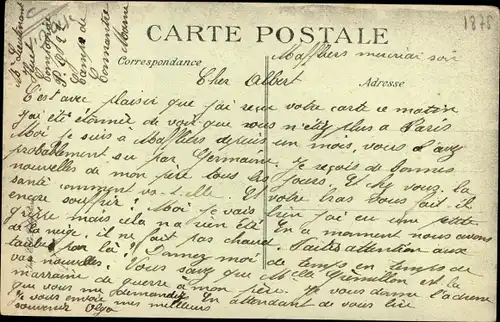 1878
CARTE POSTALE
Correspondance
Adresse
Mr Lieutenant
Camp de
Maffliers mercredi soir
Cher Albert
C'est avec plaisir que j'ai reçu votre carte ce matin
j'ai été étonnée de voir que vous n'étiez plus à Paris
Moi je suis à Maffliers depuis un mois, vous l'avez
probablement su par Germaine. Je reçois de bonnes
nouvelles de mon père tous les jours. Et chez vous, la
santé comment va-t-elle. Et votre bras vous fait-il
encore souffrir? Moi je vais bien j'ai eu une petite
grippe mais cela n'a rien été. En ce moment nous avons
de la neige, il ne fait pas chaud. Faites attention aux
par là! Donnez moi de temps en temps de
vos nouvelles. Vous savez que Melle est la
marraine de guerre à mon père. Je vous donne l'adresse
que vous me demandez. En attendant de vous lire
Je vous envoie mes meilleurs
souvenirs Olga